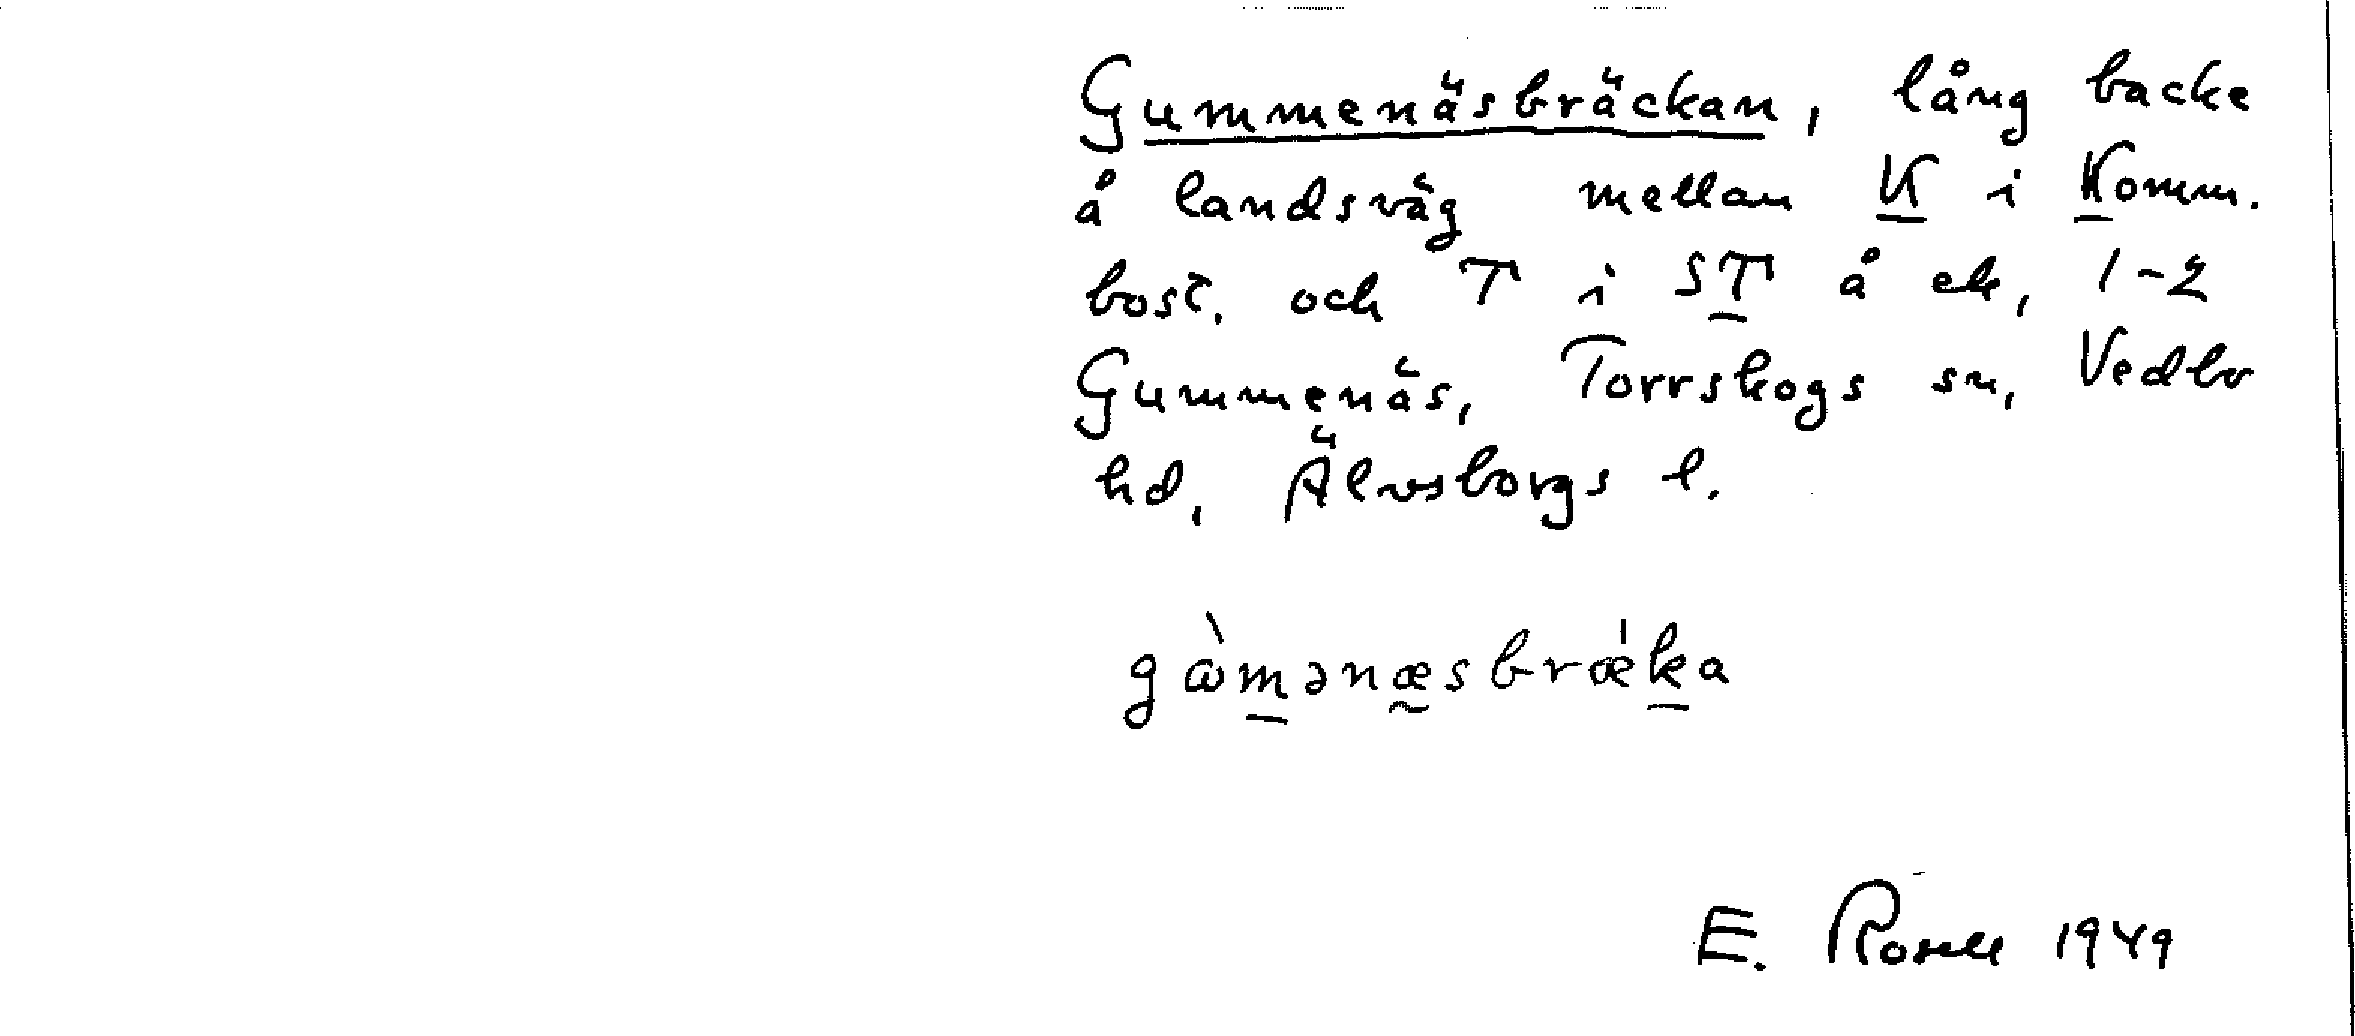 Gummenäsbräckan, lång backe
å landsväg mellan K i Komm.
bost. och T i ST å ek, 1-2
Gummenäs, Torrskogs sn, Vedbo
hd, Älvsborgs l.
gὼmənæsbrǽka
E. Rosell 1949